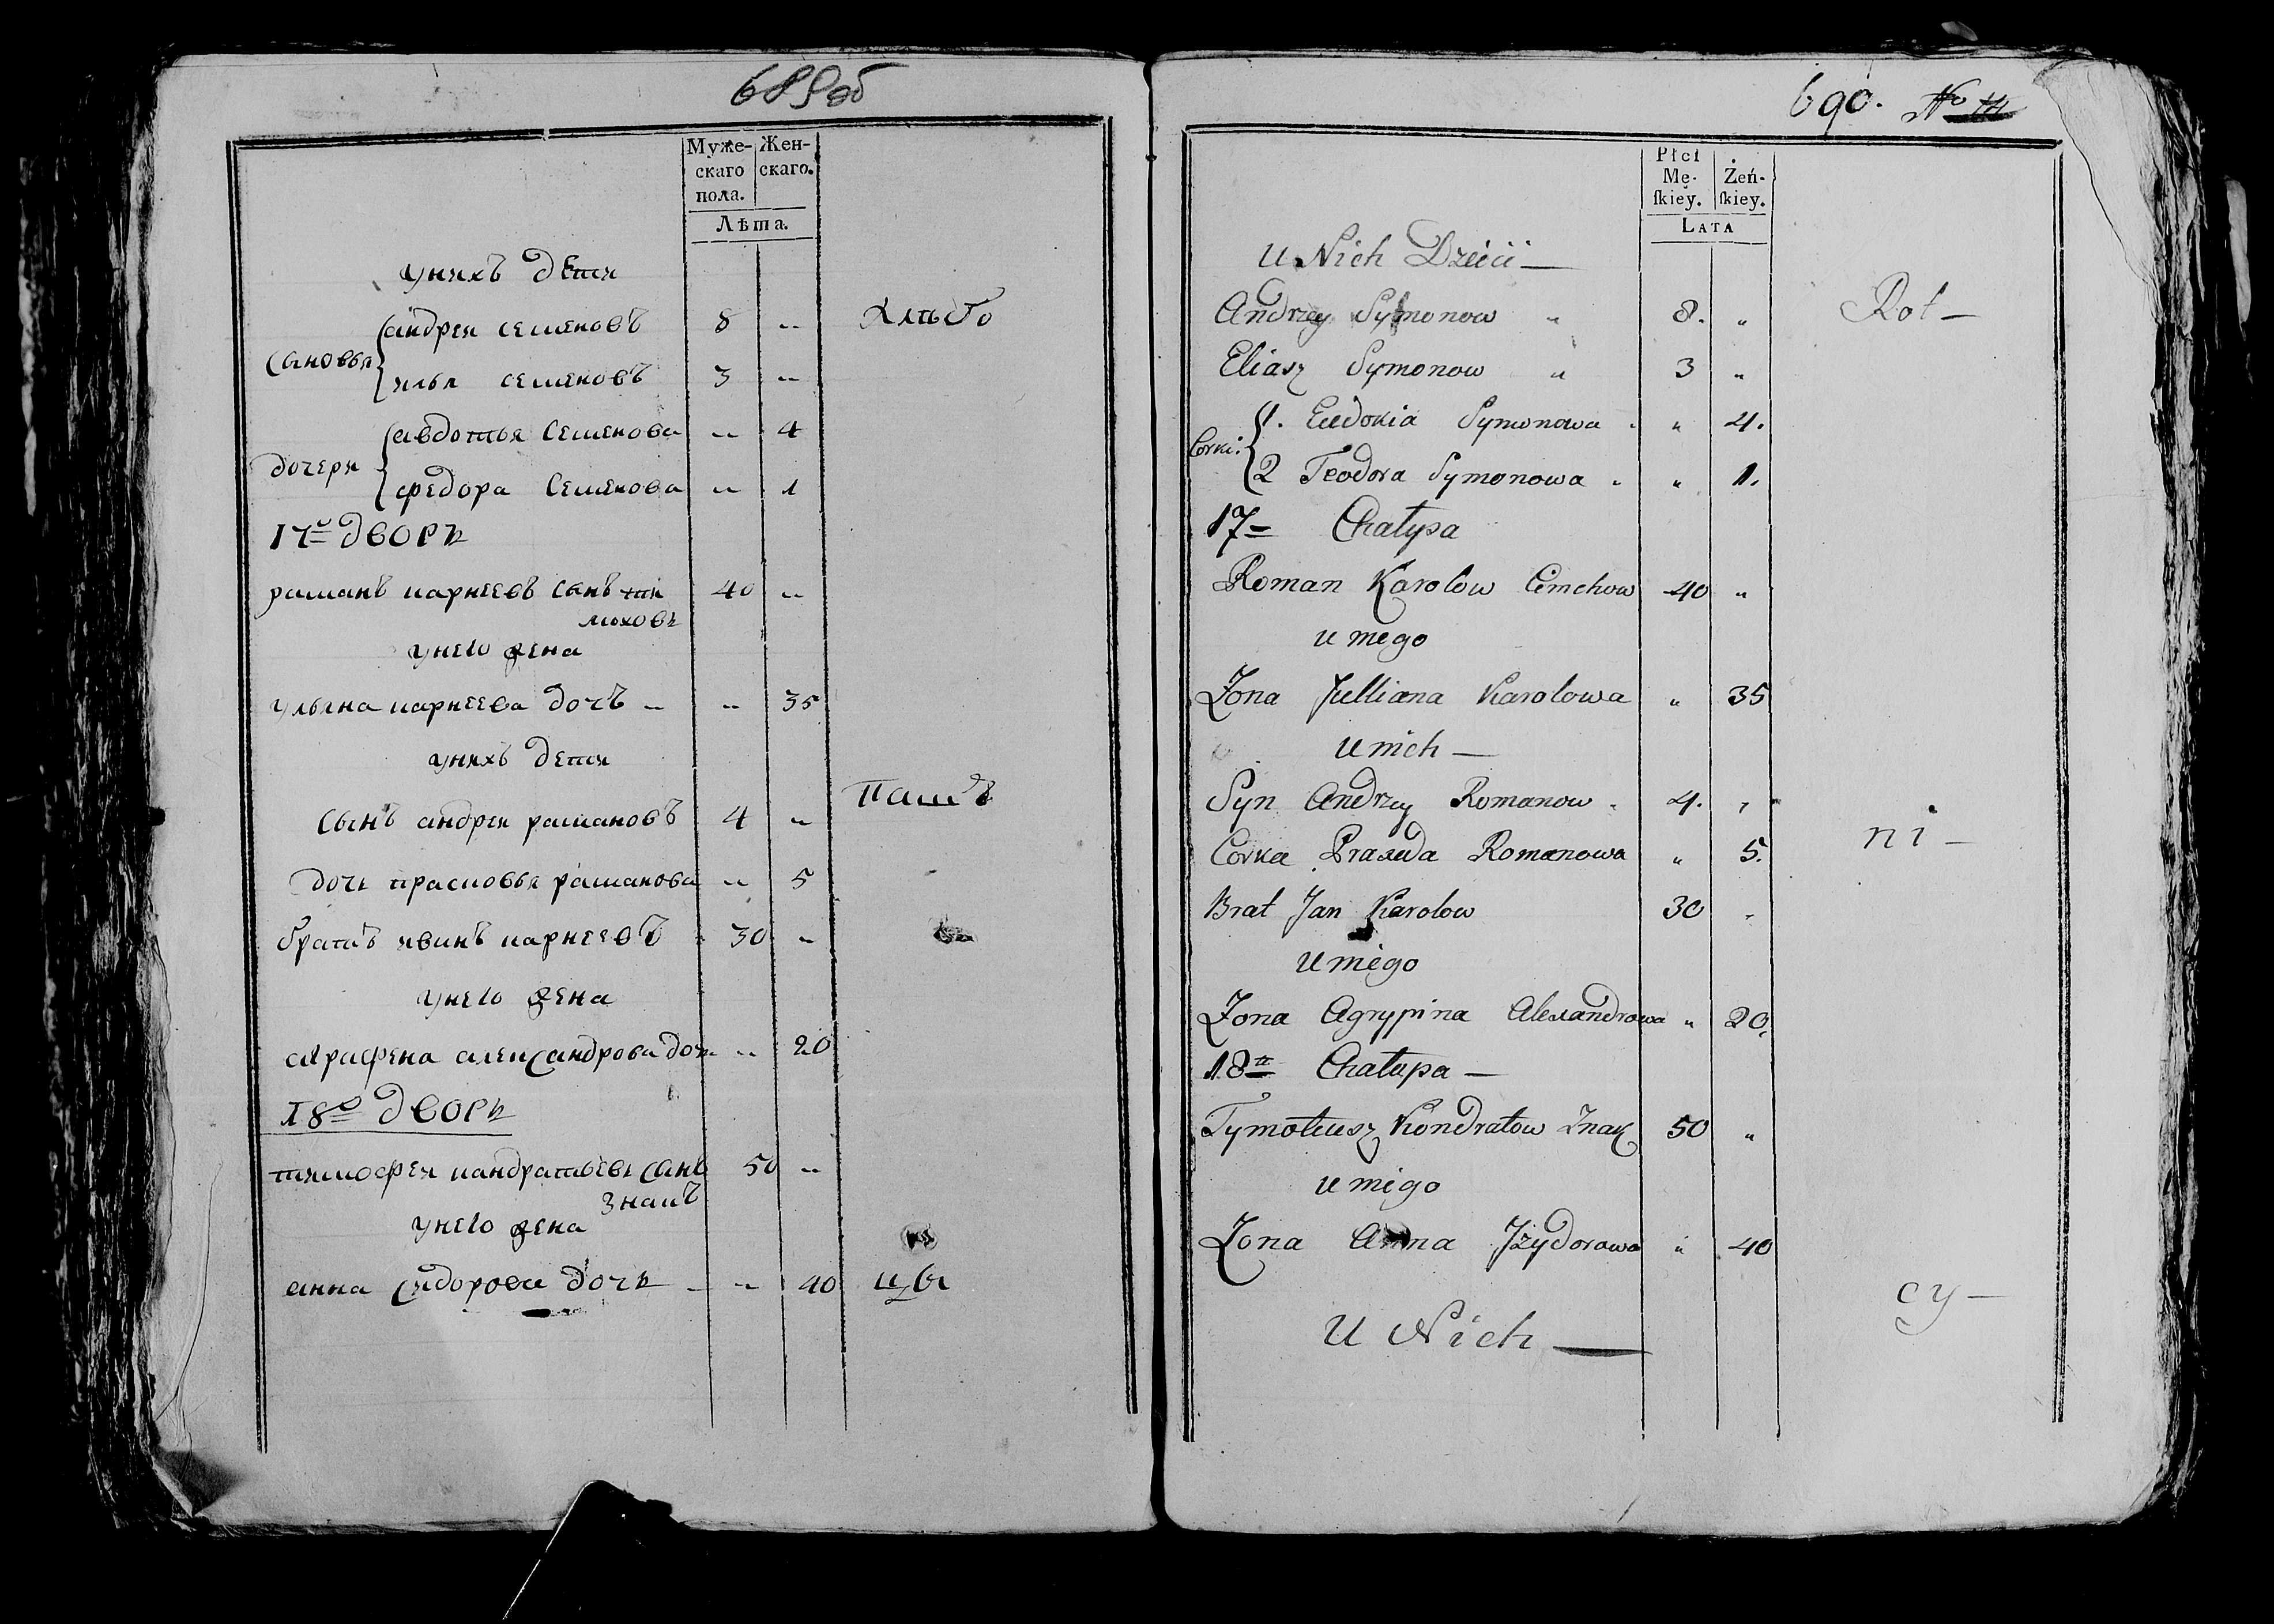 689об
Муже- Жен-
скаго скаго.
пола.
Лѣта.
унихъ дети
андреи семеновъ 8 " Хлѣбо
Сыновья
илья семеновъ 3 "
авдотья Семенова " 4
дочери
федора Семенова " 1
17й дворъ
раманъ карнеевъ сынъ ти 40 "
моховъ
унего жена
ульяна карнеева дочъ " " 35
унихъ дети
пашъ
сынъ андреи рамановъ 4 "
дочь прасковья раманова " 5
братъ иванъ карнеевъ 30 "
унего жена
аграфена александрова дочь " 20
18й дворъ
тимофеи кандратьевъ сынъ 50 "
знакъ
унего жена
анна сидорова дочь " 40 цы
690. No
Płci
Mę- Żeń-
skiey. skiey.
LATA
U Nich Dzieci —
Andrzey Symonow " 8. " Rol —
Eliasz Symonow " 3 "
1. Eudokia Symonowa " 4.
Corki:
2 Teodora Symonowa " 1.
17= Chałupa
Roman Karolow Cimchow 40 "
u niego
Żona Julliana Karolowa " 35
U nich —
Syn Andrzey Romanow 4. "
ni —
Corka Praxeda Romanowa " 5.
Brat Jan Karolow 30 "
U niego
Żona Agrypina Alexandrowa " 20.
18ta Chałupa —
Tymoteusz Kondratow Znak 50 "
u niego
Żona Anna Jzydorowa " 40
cy —
U Nich —